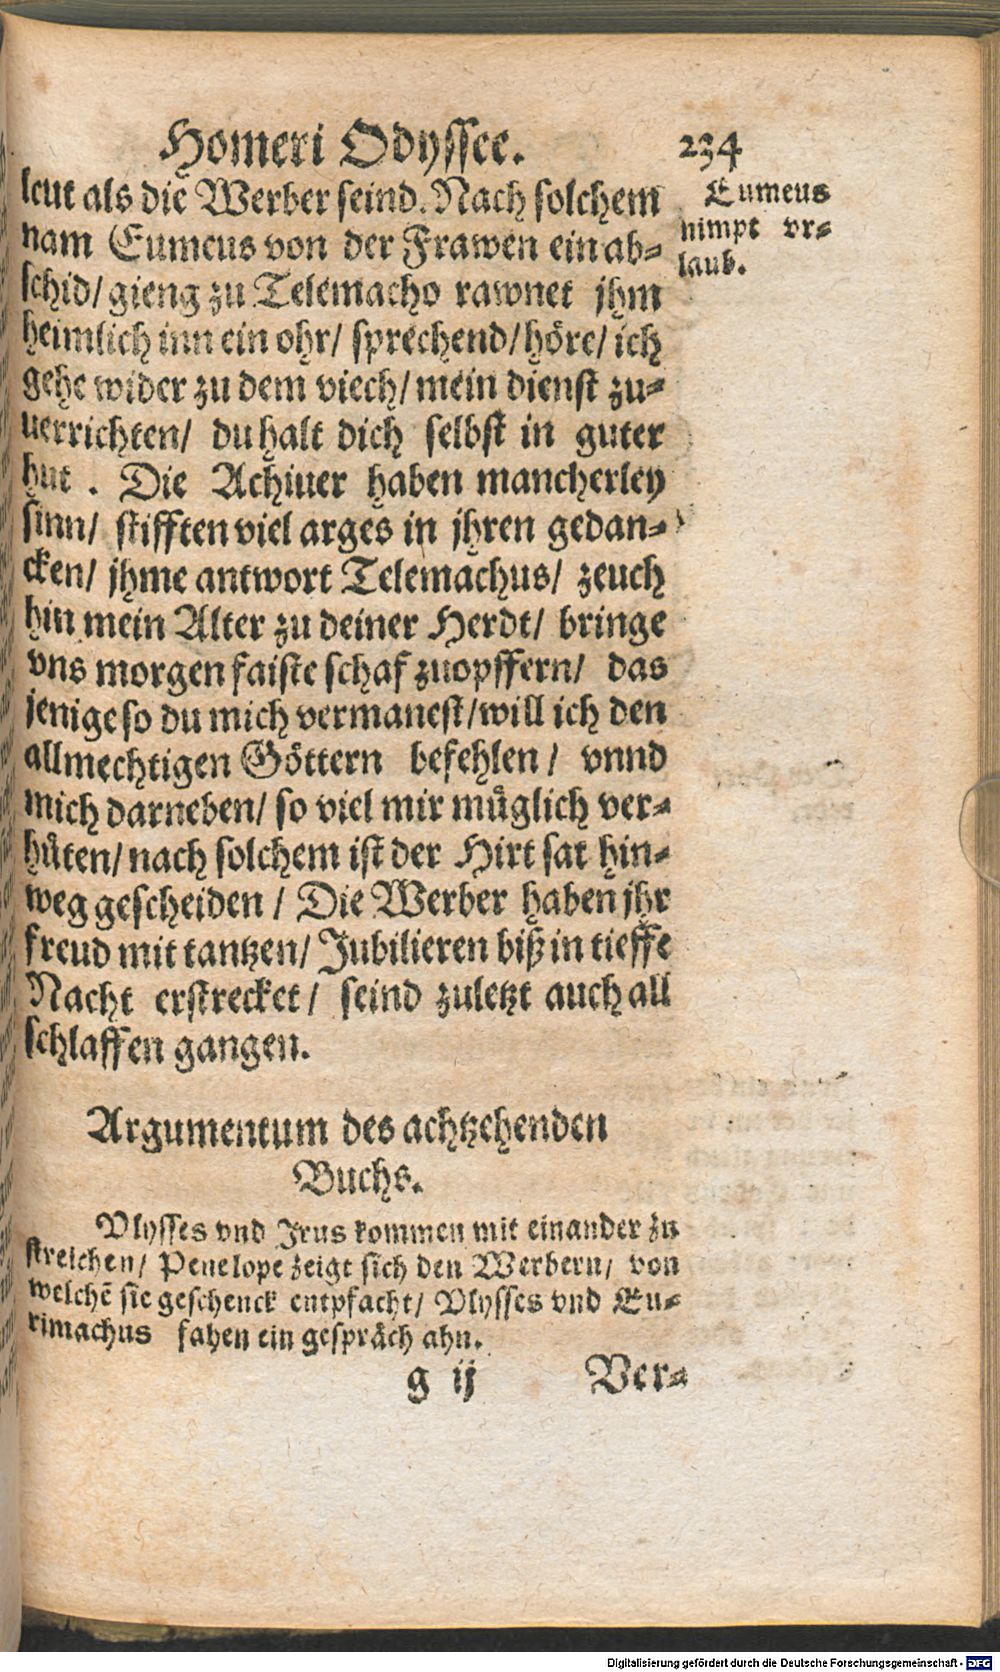 Homeri Odyssee. 234
leut als die Werber seind. Nach solchem
nam Eumeus von der Frawen ein ab-
schid/ gieng zu Telemacho rawnet jhm
heimlich inn ein ohr/ sprechend/ höre/ ich
gehe wider zu dem viech/ mein dienst zu-
uerrichten/ du halt dich selbst in guter
hut. Die Achiuer haben mancherley
sinn/ stifften viel arges in jhren gedan-
cken/ jhme antwort Telemachus/ zeuch
hin mein Alter zu deiner Herdt/ bringe
vns morgen faiste schaf zuopffern/ das
jenige so du mich vermanest/ will ich den
allmechtigen Göttern befehlen/ vnnd
mich darneben/ so viel mir müglich ver-
hüten/ nach solchem ist der Hirt sat hin-
weg gescheiden/ Die Werber haben jhr
freud mit tantzen/ Jubilieren biß in tieffe
Nacht erstrecket/ seind zuletzt auch all
schlaffen gangen.
Eumeus
nimpt vr-
laub.
Argumentum des achtzehenden
Buchs.
Vlysses vnd Irus kommen mit einander zu
streichen/ Penelope zeigt sich den Werbern/ von
welchē sie geschenck entpfacht/ Vlysses vnd Eu-
rimachus fahen ein gespräch ahn.
g ij Ver-
Digitalisierung gefördert durch die Deutsche Forschungsgemeinschaft - DFG